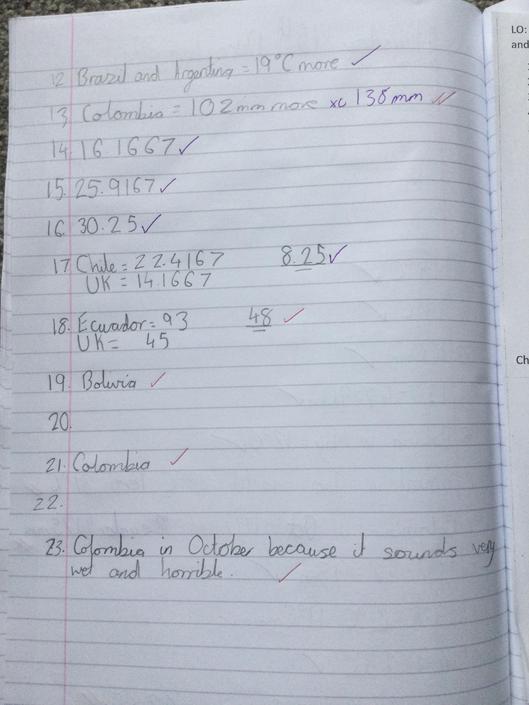 12 Brazil and Argentina = 19°C more ✓
13 Colombia = 102mm more xc 138mm ✓
14. 16.1667 ✓
15. 25.9167 ✓
16. 30.25 ✓
17 Chile = 22.4167 8.25 ✓
UK = 14.1667
18. Ecuador = 93 48 ✓
UK = 45
19. Bolivia ✓
20.
21. Colombia ✓
22.
23. Colombia in October because it sounds very
wet and horrible. ✓
LO:
and
Ch